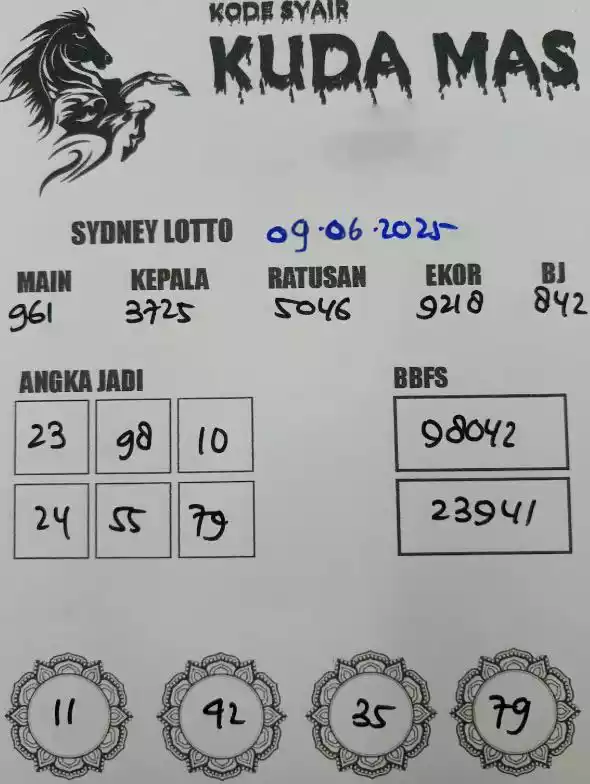 KODE SYAIR
KUDA MAS
SYDNEY LOTTO 09.06.2025
MAIN KEPALA RATUSAN EKOR BJ
961 3725 5046 9218 842
ANGKA JADI BBFS
23 98 10 98042
24 55 79 23941
11 42 35 79